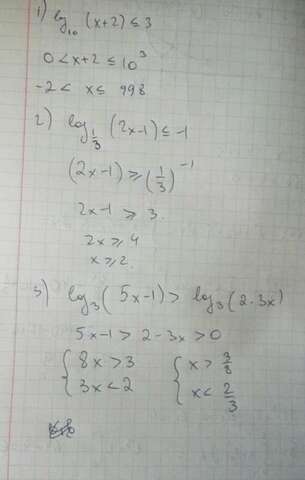 1) log₁₀ (x+2) ≤ 3
0 < x+2 ≤ 10³
-2 < x ≤ 998
2) log_{1/3} (2x-1) ≤ -1
(2x-1) ≥ (1/3)⁻¹
2x-1 ≥ 3.
2x ≥ 4
x ≥ 2.
3) log₃ (5x-1) > log₃ (2-3x)
5x-1 > 2-3x > 0
{ 8x > 3 { x > 3/8
{ 3x < 2 { x < 2/3